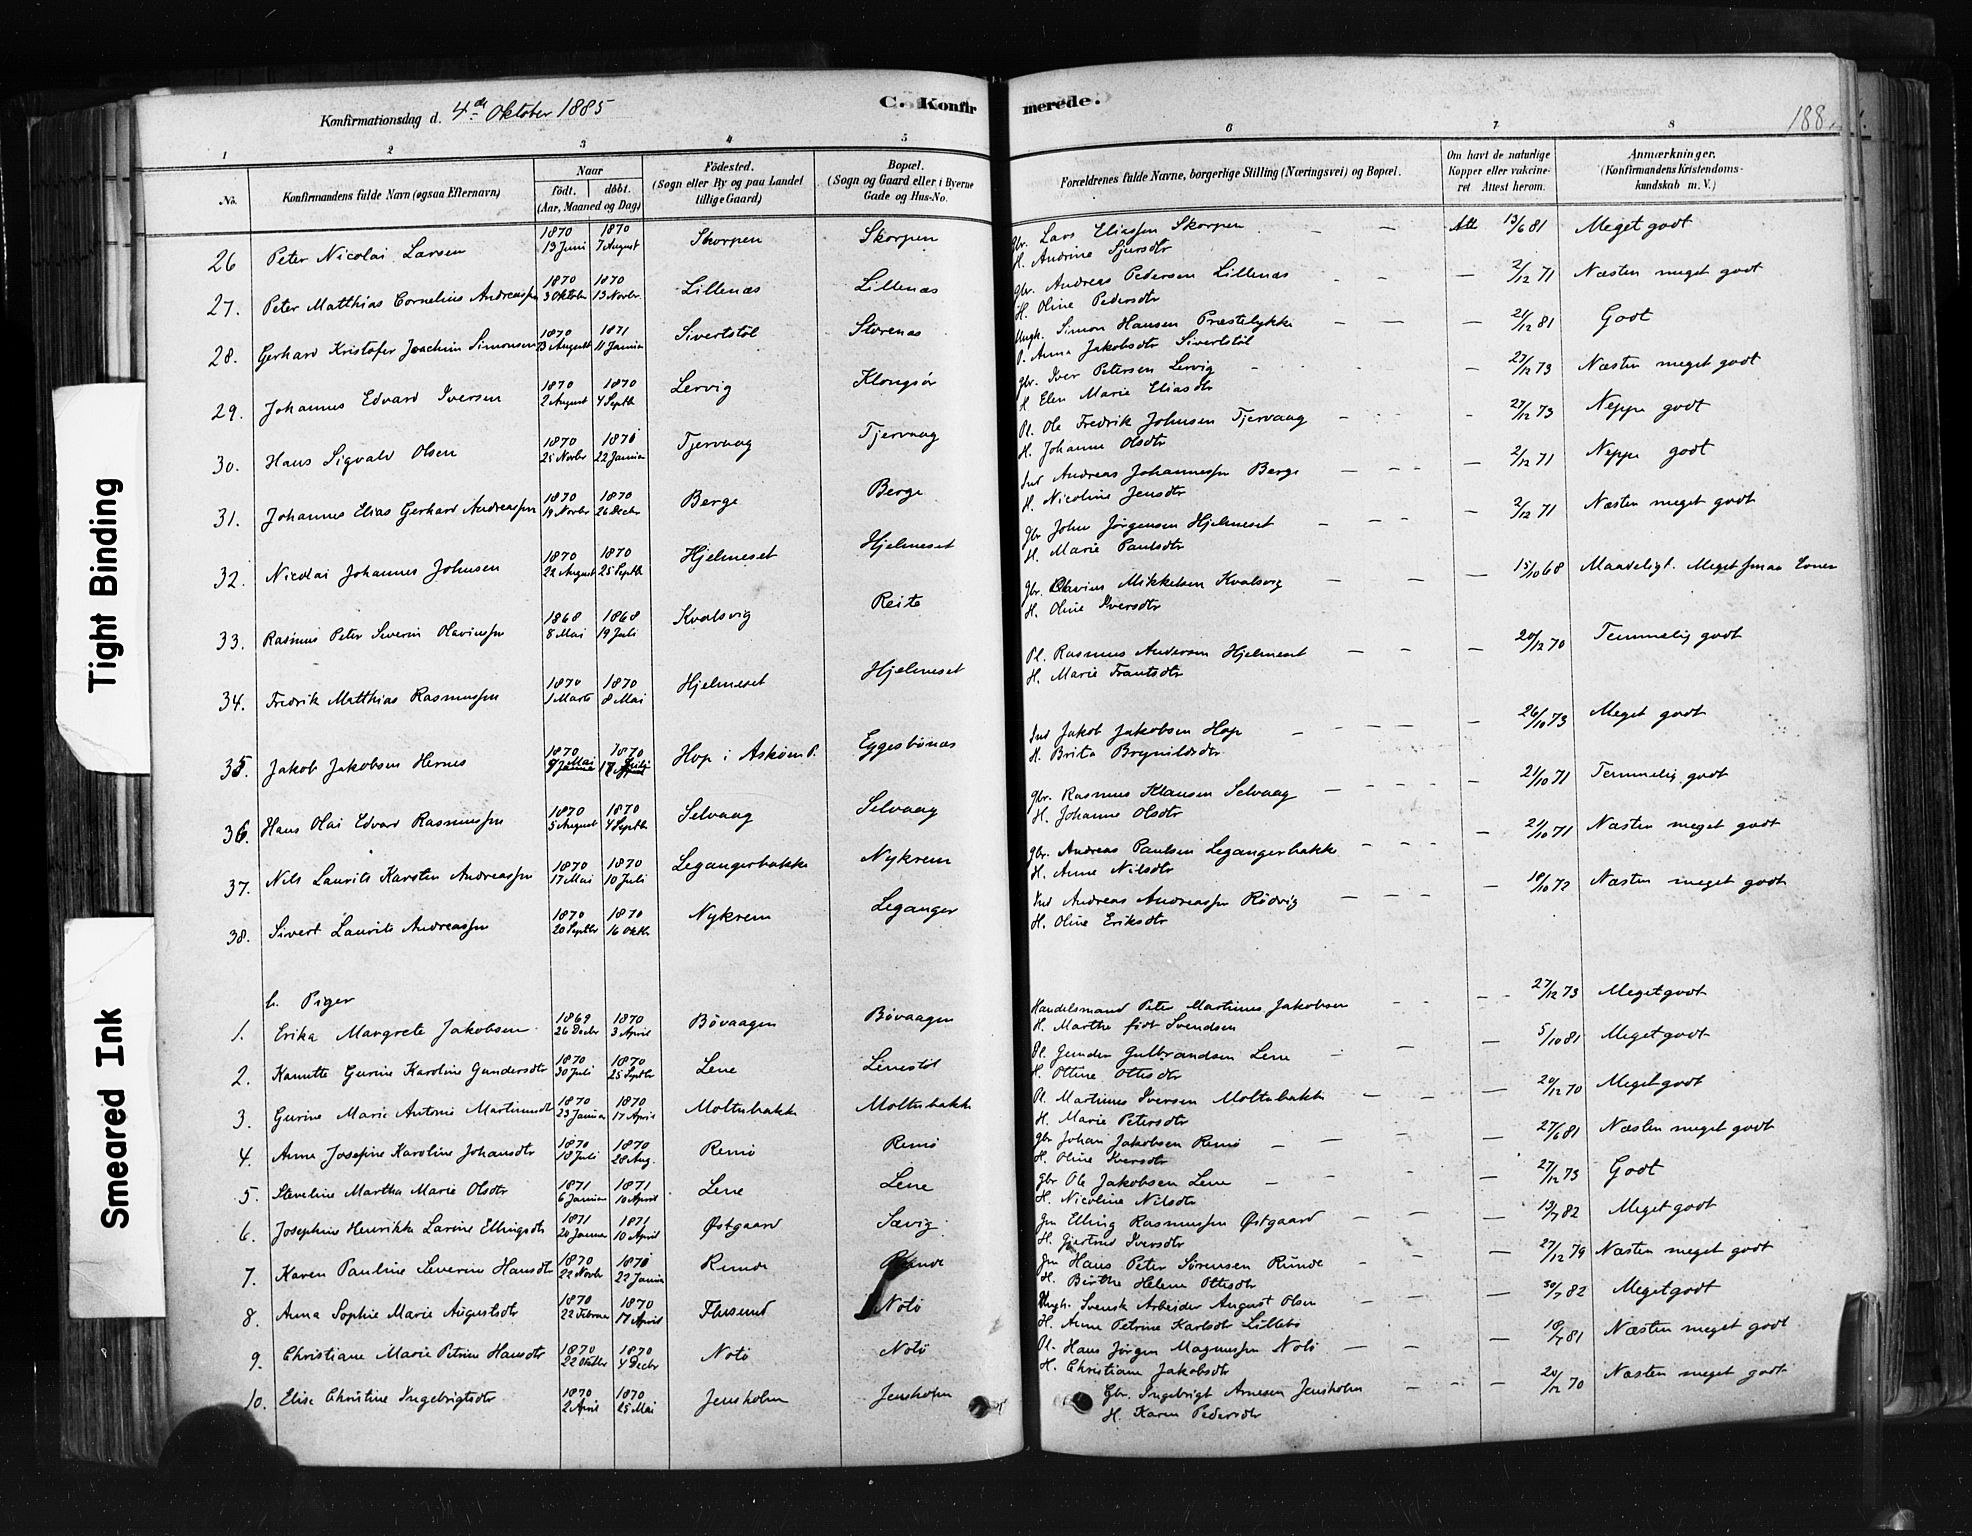 Tight Binding
Smeared Ink
Konfirmationsdag d. 4de Oktober 1885
C. Konfirmerede.
188.
1 2 3 4 5 6 7 8
No. Konfirmandens fulde Navn (ogsaa Efternavn) Naar født. døbt. (Aar, Maaned og Dag) Fødested. (Sogn eller By og paa Landet tillige Gaard) Bopæl. (Sogn og Gaard eller i Byerne Gade og Hus-No. Forældrenes fulde Navne, borgerlige Stilling (Næringsvei) og Bopæl. Om havt de naturlige Kopper eller vakcineret Attest herom. Anmærkninger. (Konfirmandens Kristendomskundskab m. V.)
26 Peter Nicolai Larsen 1870 13 Juni 1870 7 August Skorpen Skorpen Gbr. Lars Eliassen Skorpen H. Andrine Sjursdtr Att 13/6 81 Meget godt
27. Peter Matthias Cornelius Andreassen 1870 3 Oktober 1870 13 Novbr. Lillenæs Lillenæs Gbr. Andreas Pedersen Lillenæs H. Oline Pedersdtr — 2/12 71 Næsten meget godt
28. Gerhard Kristofer Joachim Simonsen 1870 13 August 1871 11 Januar Sivertstøl Storenæs Ungk. Simon Hansen Præstelykke P. Anna Jakobsdtr Sivertstøl — 21/12 81 Godt
29. Johannes Edvard Iversen 1870 2 August 1870 4 Septb Lervig Klongsør Gbr. Iver Petersen Lervig H Elen Marie Eliasdtr — 27/12 73 Næsten meget godt
30. Hans Sigvald Olsen 1870 25 Novbr 1871 22 Januar Tjervaag Tjervaag Pl. Ole Fredrik Johnsen Tjervaag H. Johanne Olsdtr — 27/12 73 Neppe godt
31. Johannes Elias Gerhard Andreassen 1870 19 Novbr 1870 26 Decbr Berge Berge Ind Andreas Johannessen Berge H. Nicoline Jensdtr — 2/12 71 Neppe godt
32. Nicolai Johannes Johnsen 1870 22 August 1870 25 Septb Hjelmeset Hjelmeset Gbr John Jørgensen Hjelmeset H. Marie Paulsdtr — 2/12 71 Næsten meget godt
33. Rasmus Peter Severin Olavinssen 1868 8 Mai 1868 19 Juli Kvalsvig Reite Gbr. Olavius Mikkelsen Kvalsvig H. Oline Iversdtr — 15/10 68 Maadeligt. Meget smaa Evner
34. Fredrik Matthias Rasmussen 1870 1 Marts 1870 8 Mai Hjelmeset Hjelmeset Pl. Rasmus Andersen Hjelmeset H. Marie Frantsdtr — 20/12 70 Temmelig godt
35. Jakob Jakobsen Hernes 1870 9 Mai 1870 17 Juli Hop i Askøens P. Eggesbønæs Ind Jakob Jakobsen Hop H. Brita Brynildsdtr — 26/10 73 Meget godt
36. Hans Olai Edvard Rasmussen 1870 5 August 1870 4 Septb Selvaag Selvaag Gbr. Rasmus Klausen Selvaag H. Johanne Olsdtr — 21/10 71 Temmelig godt
37. Nils Laurits Karsten Andreassen 1870 17 Mai 1870 10 Juli Legangerbakke Nykrem Gbr. Andreas Paulsen Legangerbakke H. Anne Nilsdtr — 21/10 71 Næsten meget godt
38. Sivert Laurits Andreassen 1870 20 Septbr 1870 16 Oktbr Nykrem Leganger Ind Andreas Andreassen Rødvig H. Oline Eriksdtr — 18/10 72 Næsten meget godt
b. Piger
1. Erika Margrete Jakobsen. 1869 26 Decbr 1870 3 April Bøvaagen Bøvaagen Handelsmand Peter Martinus Jakobsen H. Marthe født Svendsen — 27/12 73 Meget godt
2. Kanutte Gurine Karoline Gundersdtr 1870 30 Juli 1870 25 Septbr Lene Lenestøl Pl. Gunder Gulbrandsen Lene H. Ottine Ottisdtr — 5/10 81 Meget godt
3. Gurine Marie Antonie Martinusdt 1870 23 Januar 1870 17 April Moltubakk Moltubakk Pl. Martinus Iversen Moltubakk H. Marie Petersdtr — 20/12 70 Meget godt
4. Anne Josefine Karoline Johansdtr 1870 18 Juli 1870 28 Aug. Remø Remø Gbr Johan Jakobsen Remø H. Oline Iversdtr — 27/6 81 Næsten meget godt
5. Steveline Martha Marie Olsdtr 1871 6 Januar 1871 10 April Lene Lene Gbr Ole Jakobsen Lene H. Nicoline Nilsdtr — 27/12 73 Godt
6. Josephine Henrikke Larine Ellingsdtr 1871 20 Januar 1871 10 April Østgaard Sævig. Elling Rasmussen Østgaard H. Gjertrud Iversdtr — 13/7 82 Meget godt
7. Karen Pauline Severine Hansdtr 1870 22 Novbr 1871 22 Januar Runde Runde Hans Peter Sørensen Runde H. Birthe Helene Ottisdtr — 27/12 79 Næsten meget godt
8. Anna Sophie Marie Augustsdtr 1870 22 Februar 1870 17 April Flusund Notø Ungk. Svensk Arbeider August Olsen H. Anne Petrine Karlsdtr Lillebø — 30/7 82 Meget godt
9. Christiane Marie Petrine Hansdtr 1870 22 Oktbr 1870 4 Decbr Notø Notø Pl. Hans Jørgen Magnussen Notø H. Christiane Jakobsdtr — 18/7 81 Næsten meget godt
10. Elise Christine Ingebrigtsdtr 1870 2 April 1870 25 Mai Jensholm Jensholm Gbr. Ingebrigt Arnesen Jensholm H. Karen Pedersdtr — 20/12 70 Næsten meget godt